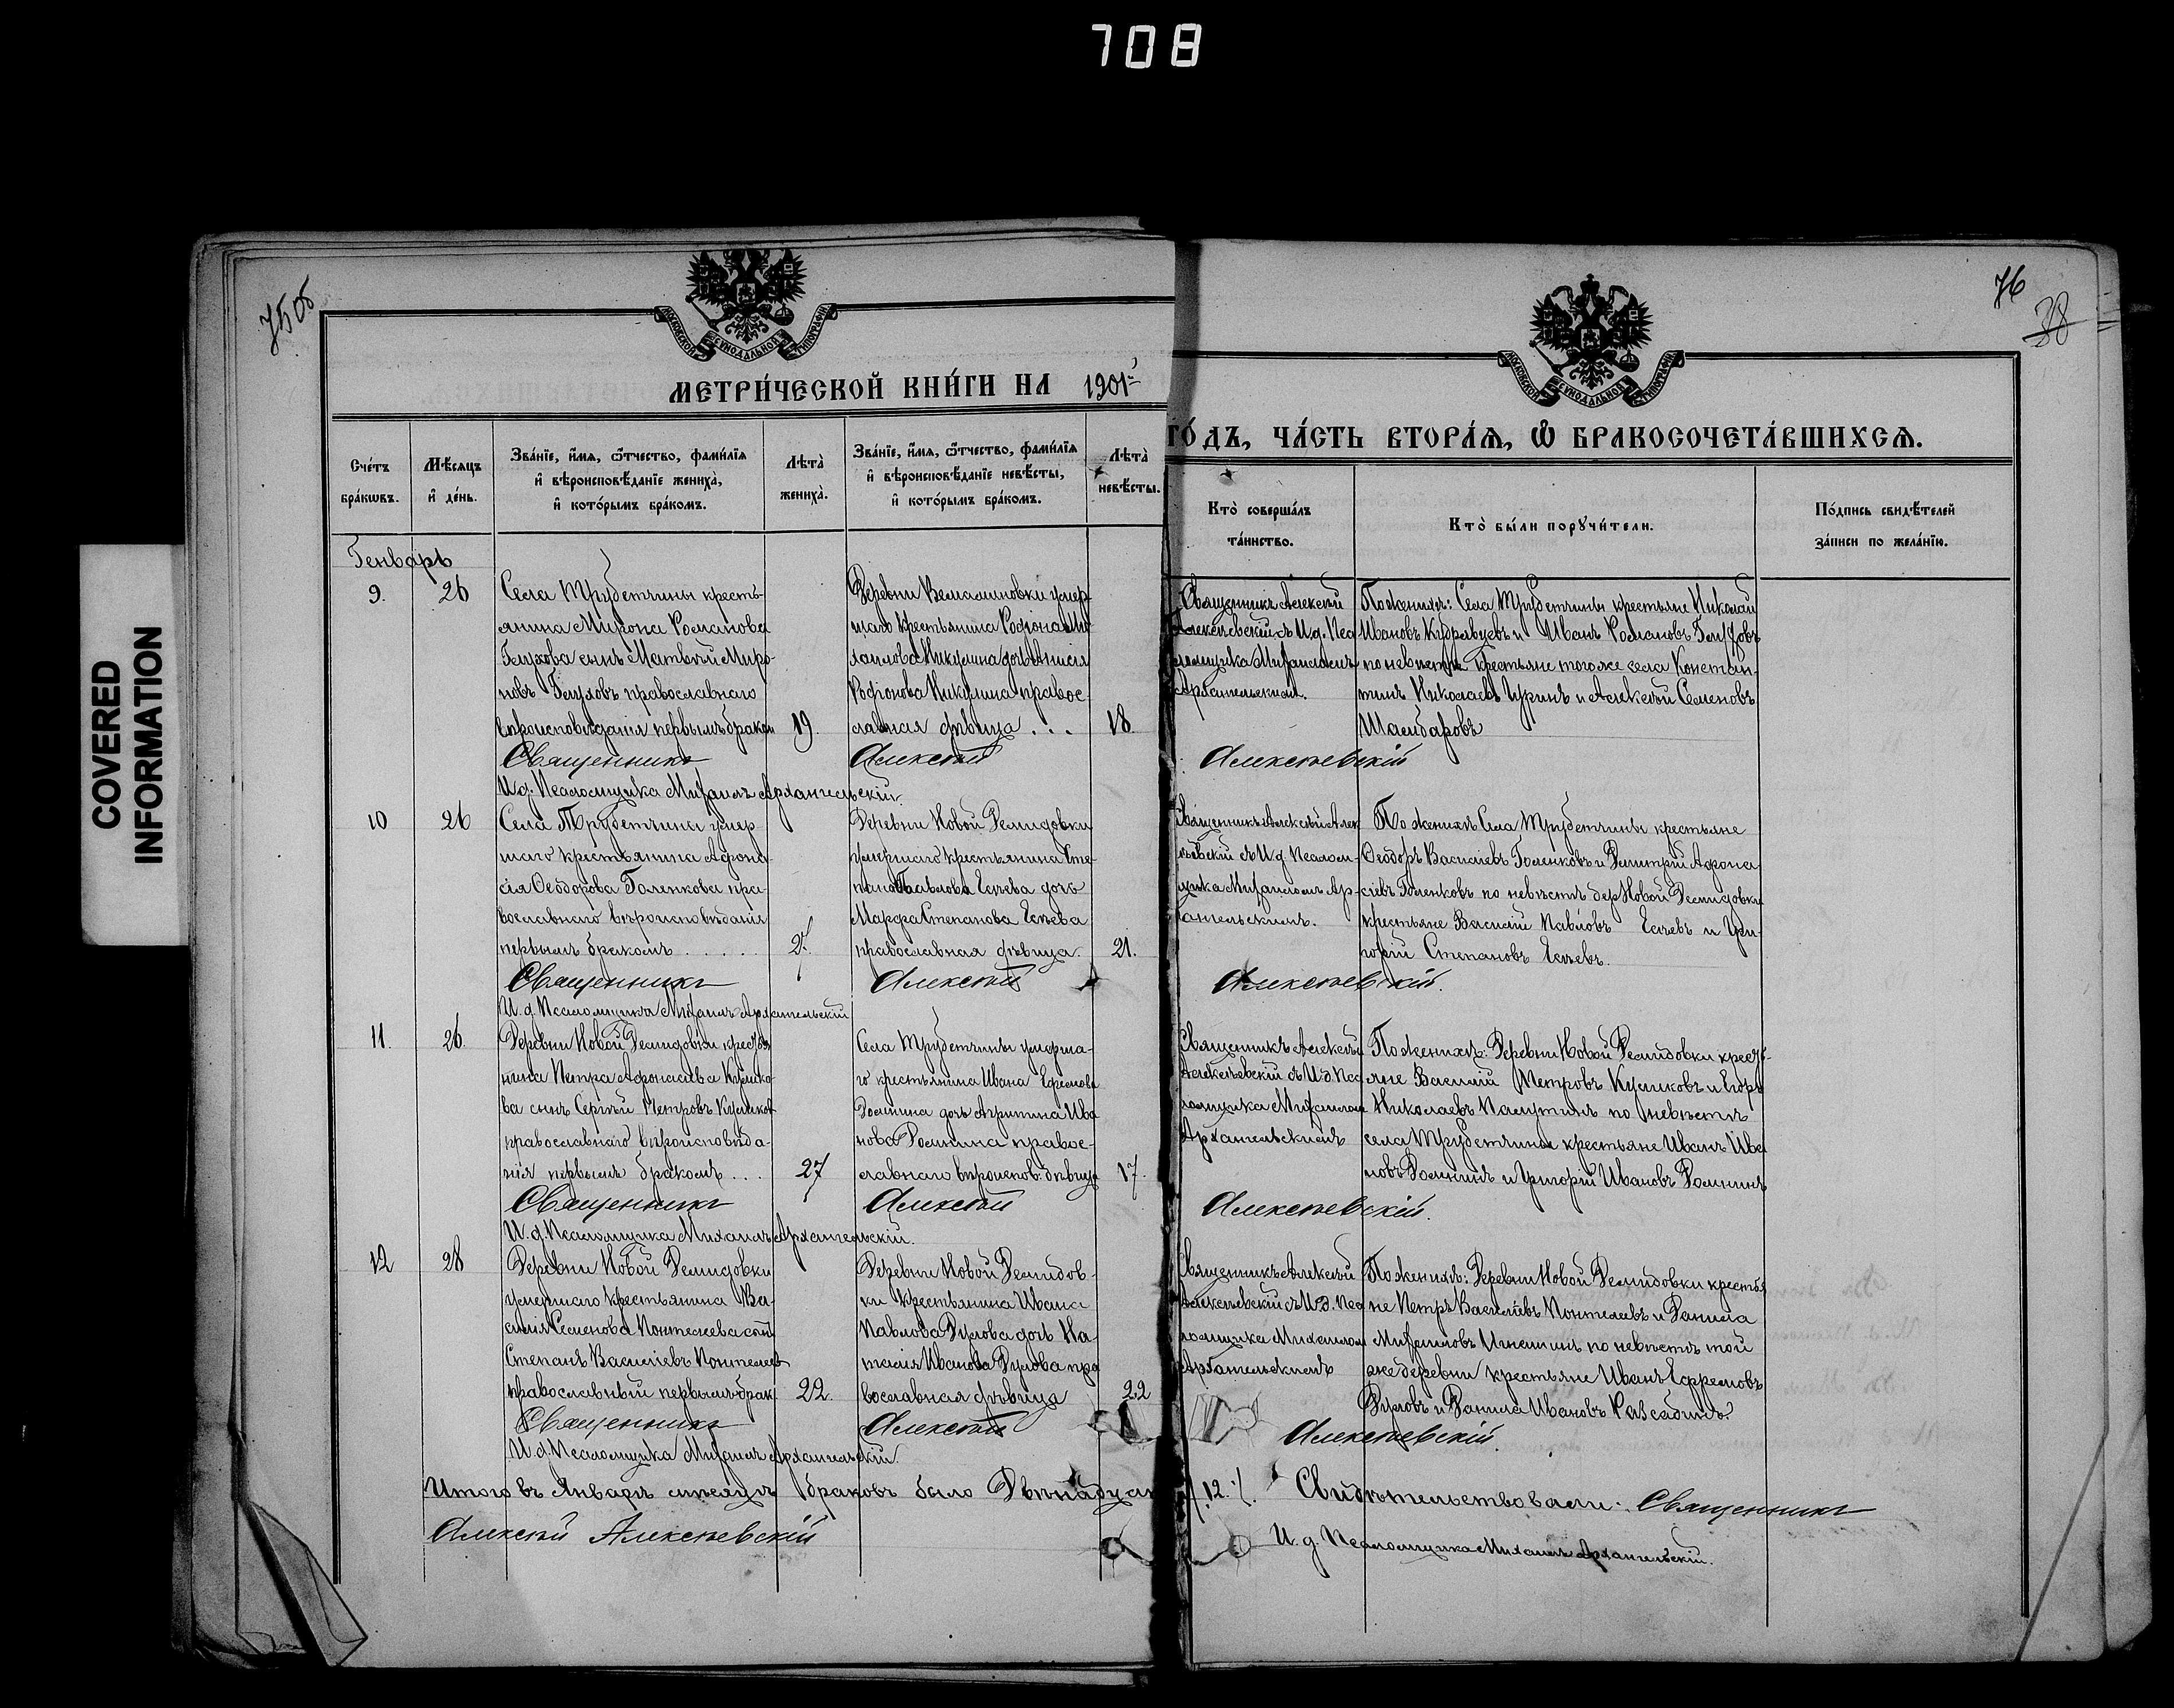 708
COVERED
INFORMATION
75об
76
38
МОСКОВСКОЙ СѴНОДАЛЬНОЙ ТИПОГРАФІИ
МОСКОВСКОЙ СѴНОДАЛЬНОЙ ТИПОГРАФІИ
МЕТРИ́ЧЕСКОЙ КНИ́ГИ НА 1901й
ГО́ДЪ, ЧА́СТЬ ВТОРА́Я, Ѽ БРАКОСОЧЕТА́ВШИХСЯ.
Сче́тъ
бра́кѡвъ.
Мѣ́сяцъ
и҆ де́нь.
Зва́нїе, и҆́мя, ѻ҆́тчество, фами́лїя
и҆ вѣроисповѣ́данїе жениха̀,
и҆ кото́рымъ бра́комъ.
Лѣта̀
жениха̀.
Зва́нїе, и҆́мя, ѻ҆́тчество, фами́лїя
и҆ вѣроисповѣ́данїе невѣ́сты,
и҆ кото́рымъ бра́комъ.
Лѣта̀
невѣ́сты.
Кто̀ соверша́лъ
та́инство.
Кто̀ бы́ли порꙋчи́тели.
По́дпись свидѣ́телей
за́писи по жела́нїю.
Генварь
9.
26
Села Трубетчины кресть-
янина Мирона Романова
Глухова сынъ Матвѣй Миро-
новъ Глуховъ православнаго
вѣроисповѣданія первымъ браком
19.
Деревни умер-
шаго крестьянина Родіона Ми
хаилова Никулина дочь
Родіонова Никулина правос-
лавная дѣвица . . .
18.
Священникъ Алексѣй
Алексѣевскій съ И.д. Пса
ломщика Михаиломъ
Архангельскимъ.
По женихѣ: Села Трубетчины крестьяне Николай
Ивановъ Кудрявцевъ и Иванъ Романовъ Глуховъ
по невѣстѣ крестьяне того же села Констан-
тинъ Николаевъ и Алексѣй Семеновъ
Священникъ Алексѣй Алексѣевскій
И.д. Псаломщика Михаилъ Архангельскій.
10
26
Села Трубетчины умер-
шаго крестьянина Афона-
сія Ѳеодорова Голенкова пра-
вославнаго вѣроисповѣданія
первымъ бракомъ . . . . .
27
Деревни Новой Демидовки
умершаго крестьянина Сте-
пана Павлова дочь
Марфа Степанова
православная дѣвица.
21.
Священникъ Алексѣй Алек
сѣевскій съ И.д. Псалом-
щика Михаиломъ Ар-
хангельскимъ.
По женихѣ Села Трубетчины крестьяне
Ѳеодоръ Василіевъ Голенковъ и Димитрій Афона
сіевъ Голенковъ по невѣстѣ дер Новой Демидовки
крестьяне Василій Павловъ и Гри-
горій Степановъ
Священникъ Алексѣй Алексѣевскій.
И.д. Псаломщика Михаилъ Архангельскій
11.
26.
Деревни Новой Демидовки крестья
нина Петра Афонасіева Куликo
ва сынъ Сергѣй Петровъ Куликов
православнаго вѣроисповѣда-
нія первымъ бракомъ . . .
27
Села Трубетчины умерша-
го крестьянина Ивана Ефремова
Фомина дочь Агрипина Ива
нова Фомина правос-
лавнаго вѣроисповѣд. дѣвица
17.
Священникъ Алексѣй
Алексѣевскій съ И.д. Пса
ломщика Михаиломъ
Архангельскимъ
По женихѣ: Деревни Новой Демидовки кресть-
яне Василій Петровъ Куликовъ и Егоръ
Николаевъ по невѣстѣ
села Трубетчины крестьяне Иванъ Ива
новъ Фоминъ и Григорій Ивановъ Фоминъ
Священникъ Алексѣй Алексѣевскій.
И.д. Псаломщика Михаилъ Архангельскій.
12
28
Деревни Новой Демидовки
умершаго крестьянина Ва-
силія Семенова Понтелеева сынъ
Степанъ Василіевъ Понтелеев
православный первымъ брак.
22.
Деревни Новой Демидов-
ки крестьянина Ивана
Павлова дочь На-
талія Иванова пра
вославная дѣвица
22
Священникъ Алексѣй
Алексѣевскій съ И.д. Пса
ломщика Михаиломъ
Архангельскимъ
По женихѣ: Деревни Новой Демидовки крестья
не Петръ Василіевъ Понтелеевъ и Данила
Михаиловъ по невѣстѣ той
же деревни крестьяне Иванъ Ефремовъ
и Данила Ивановъ Разсадинъ.
Священникъ Алексѣй Алексѣевскій.
И.д. Псаломщика Михаилъ Архангельскій.
Итого въ Январѣ мѣсяцѣ браковъ было Двѣнадцать /.12./. Свидѣтельствовали: Священникъ
Алексѣй Алексѣевскій
И.д. Псаломщика Михаилъ Архангельскій.